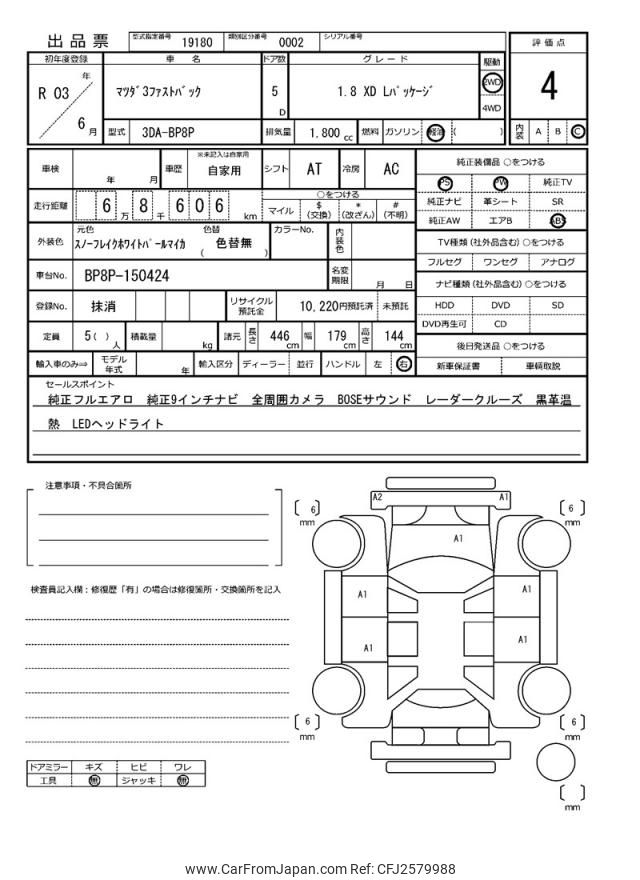 出品票 型式指定番号 19180 類別区分番号 0002 シリアル番号
評価点
4
初年度登録 車名 ドア数 グレード 駆動
R 03 年 6 月
マツダ3ファストバック 5 D 1.8 XD Lパッケージ 2WD
4WD
型式 3DA-BP8P 排気量 1,800 cc 燃料 ガソリン 軽油 ( )
内装 A B C
車検 年 月 車歴 ※未記入は自家用 自家用 シフト AT 冷房 AC
走行距離 6 万 8 千 6 0 6 km
○をつける
マイル $(交換) *(改ざん) #(不明)
外装色 元色 スノーフレイクホワイトパールマイカ 色替 ( 色替無 ) カラーNo. 内装色
車台No. BP8P-150424 名変期限 月 日
登録No. 抹消 リサイクル預託金 10,220円預託済 未預託
定員 5 ( ) 人 積載量 kg 諸元 長さ 446 cm 幅 179 cm 高さ 144 cm
輸入車のみ⇒ モデル年式 年 輸入区分 ディーラー 並行 ハンドル 左 右
純正装備品 ○をつける
PS PW 純正TV
純正ナビ 革シート SR
純正AW エアB ABS
TV種類 (社外品含む) ○をつける
フルセグ ワンセグ アナログ
ナビ種類 (社外品含む) ○をつける
HDD DVD SD
DVD再生可 CD
後日発送品 ○をつける
新車保証書 車輌取説
セールスポイント
純正フルエアロ 純正9インチナビ 全周囲カメラ BOSEサウンド レーダークルーズ 黒革温
熱 LEDヘッドライト
注意事項・不具合箇所
検査員記入欄：修復歴「有」の場合は修復箇所・交換箇所を記入
ドアミラー キズ ヒビ ワレ
工具 無 ジャッキ 無
A2 A1
[ 6 ] mm
[ 6 ] mm
A1
A1 A1
A1 A1
[ 6 ] mm
[ 6 ] mm
[ ] mm
www.CarFromJapan.com Ref: CFJ2579988